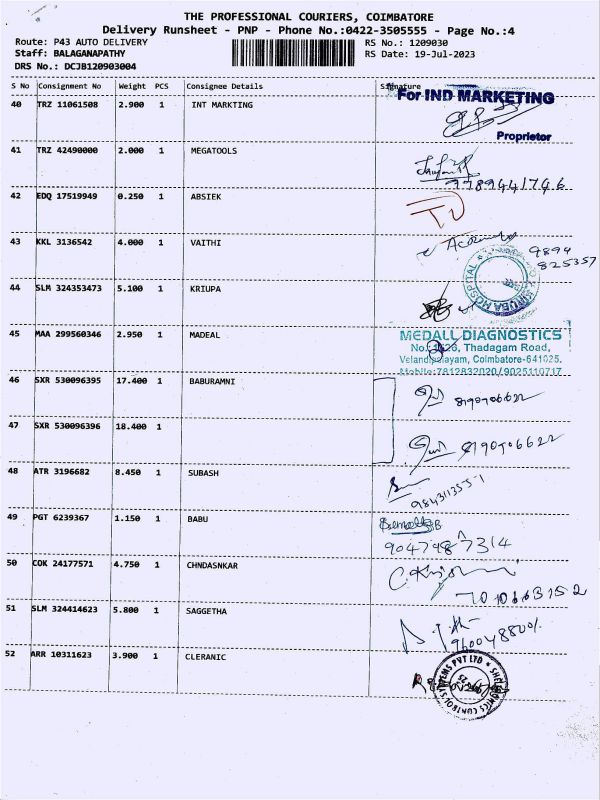 THE PROFESSIONAL COURIERS, COIMBATORE
Delivery Runsheet - PNP - Phone No.:0422-3505555 - Page No.:4
Route: P43 AUTO DELIVERY RS No.: 1209030
Staff: BALAGANAPATHY RS Date: 19-Jul-2023
DRS No.: DCJB120903004
S No Consignment No Weight PCS Consignee Details Signature
40 TRZ 11061508 2.900 1 INT MARKTING
For IND MARKETING
Proprietor
41 TRZ 42490000 2.000 1 MEGATOOLS
9789441746
42 EDQ 17519949 0.250 1 ABSIEK
43 KKL 3136542 4.000 1 VAITHI
9894
825357
44 SLM 324353473 5.100 1 KRIUPA
HOSPITAL
45 MAA 299560346 2.950 1 MADEAL
MEDALL DIAGNOSTICS
No. 1426, Thadagam Road,
Velandipalayam, Coimbatore-641025.
Mobile:7812832020/9025110717
46 SXR 530096395 17.400 1 BABURAMNI
8190706622
47 SXR 530096396 18.400 1
8190706622
48 ATR 3196682 8.450 1 SUBASH
9843113551
49 PGT 6239367 1.150 1 BABU
9047987314
50 COK 24177571 4.750 1 CHNDASNKAR
7010663152
51 SLM 324414623 5.800 1 SAGGETHA
52 ARR 10311623 3.900 1 CLERANIC